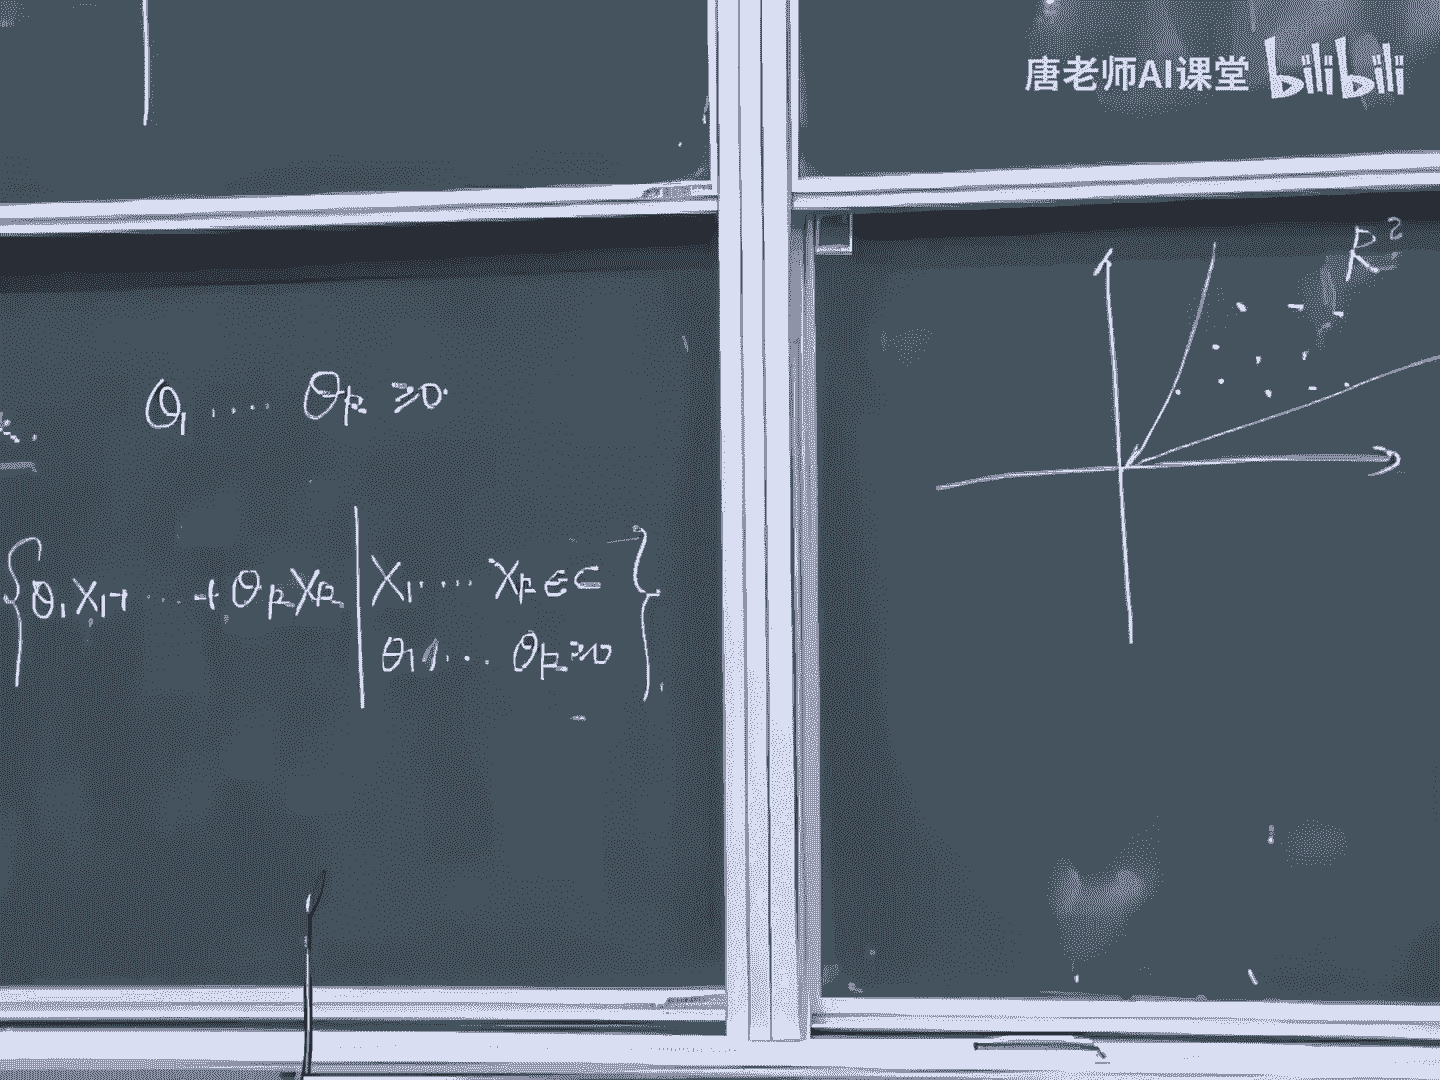 唐老师AI课堂 bilibili
θ₁ .... θₖ ≥0.
{θ₁X₁+ .... +θₖXₖ | X₁.... Xₖ∈C
θ₁.... θₖ≥0}.
R²